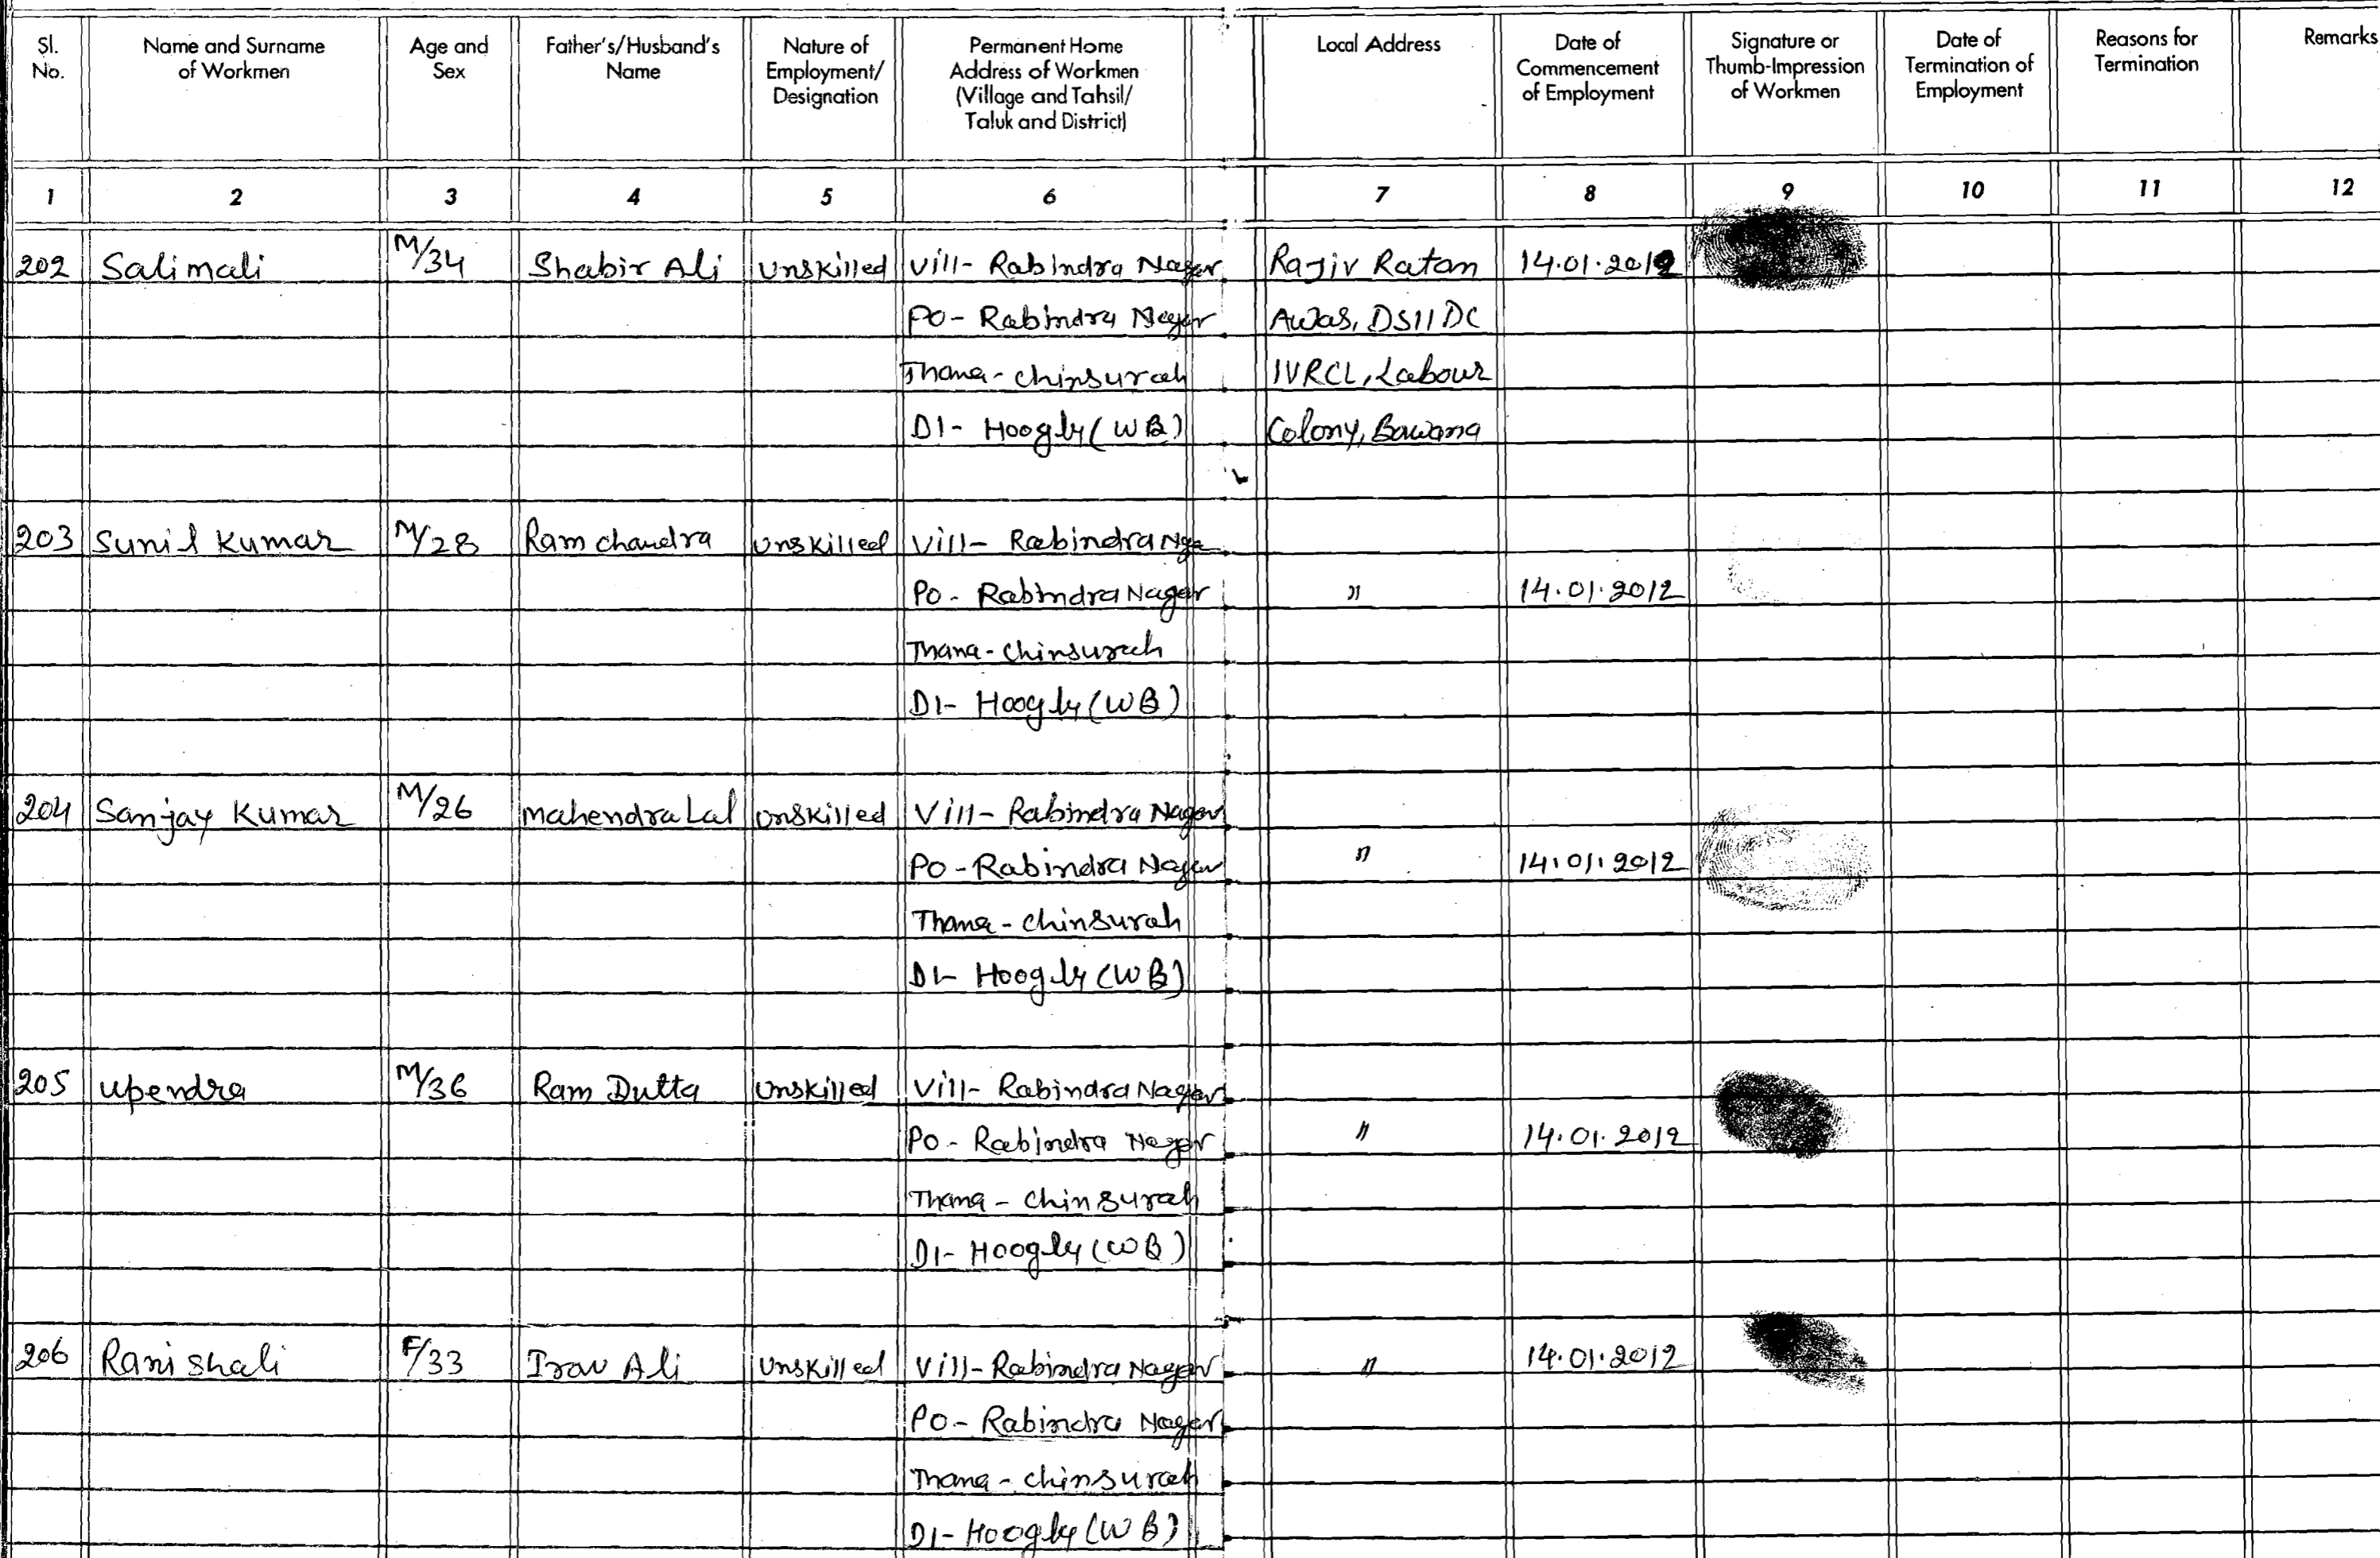 Sl. No. Name and Surname of Workmen Age and Sex Father's/Husband's Name Nature of Employment/ Designation Permanent Home Address of Workmen (Village and Tahsil/ Taluk and District) Local Address Date of Commencement of Employment Signature or Thumb-Impression of Workmen Date of Termination of Employment Reasons for Termination Remarks
1 2 3 4 5 6 7 8 9 10 11 12
202 Salimali M/34 Shabir Ali Unskilled Vill- Rabindra Nagar Rajiv Ratan 14.01.2012
PO- Rabindra Nagar Awas, DSIIDC
Thana- Chinsurah IVRCL, Labour
DI- Hoogly (WB) Colony, Bawana
203 Sunil Kumar M/28 Ram chandra Unskilled Vill- Rabindra Nga
Po- Rabindra Nagar " 14.01.2012
Thana- Chinsurah
DI- Hoogly (WB)
204 Sanjay Kumar M/26 Mahendra Lal Unskilled Vill- Rabindra Nagar
PO- Rabindra Nagar " 14.01.2012
Thana- Chinsurah
DI- Hoogly (WB)
205 Upendra M/36 Ram Dutta Unskilled Vill- Rabindra Nagar
PO- Rabindra Nagar " 14.01.2012
Thana- Chinsurah
DI- Hoogly (WB)
206 Ranishali F/33 Ali Unskilled Vill- Rabindra Nagar " 14.01.2012
PO- Rabindra Nagar
Thana- Chinsurah
DI- Hoogly (WB)